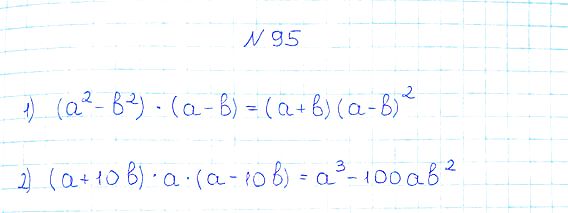 № 95
1) (a² - b²) · (a - b) = (a + b) (a - b)²
2) (a + 10b) · a · (a - 10b) = a³ - 100ab²